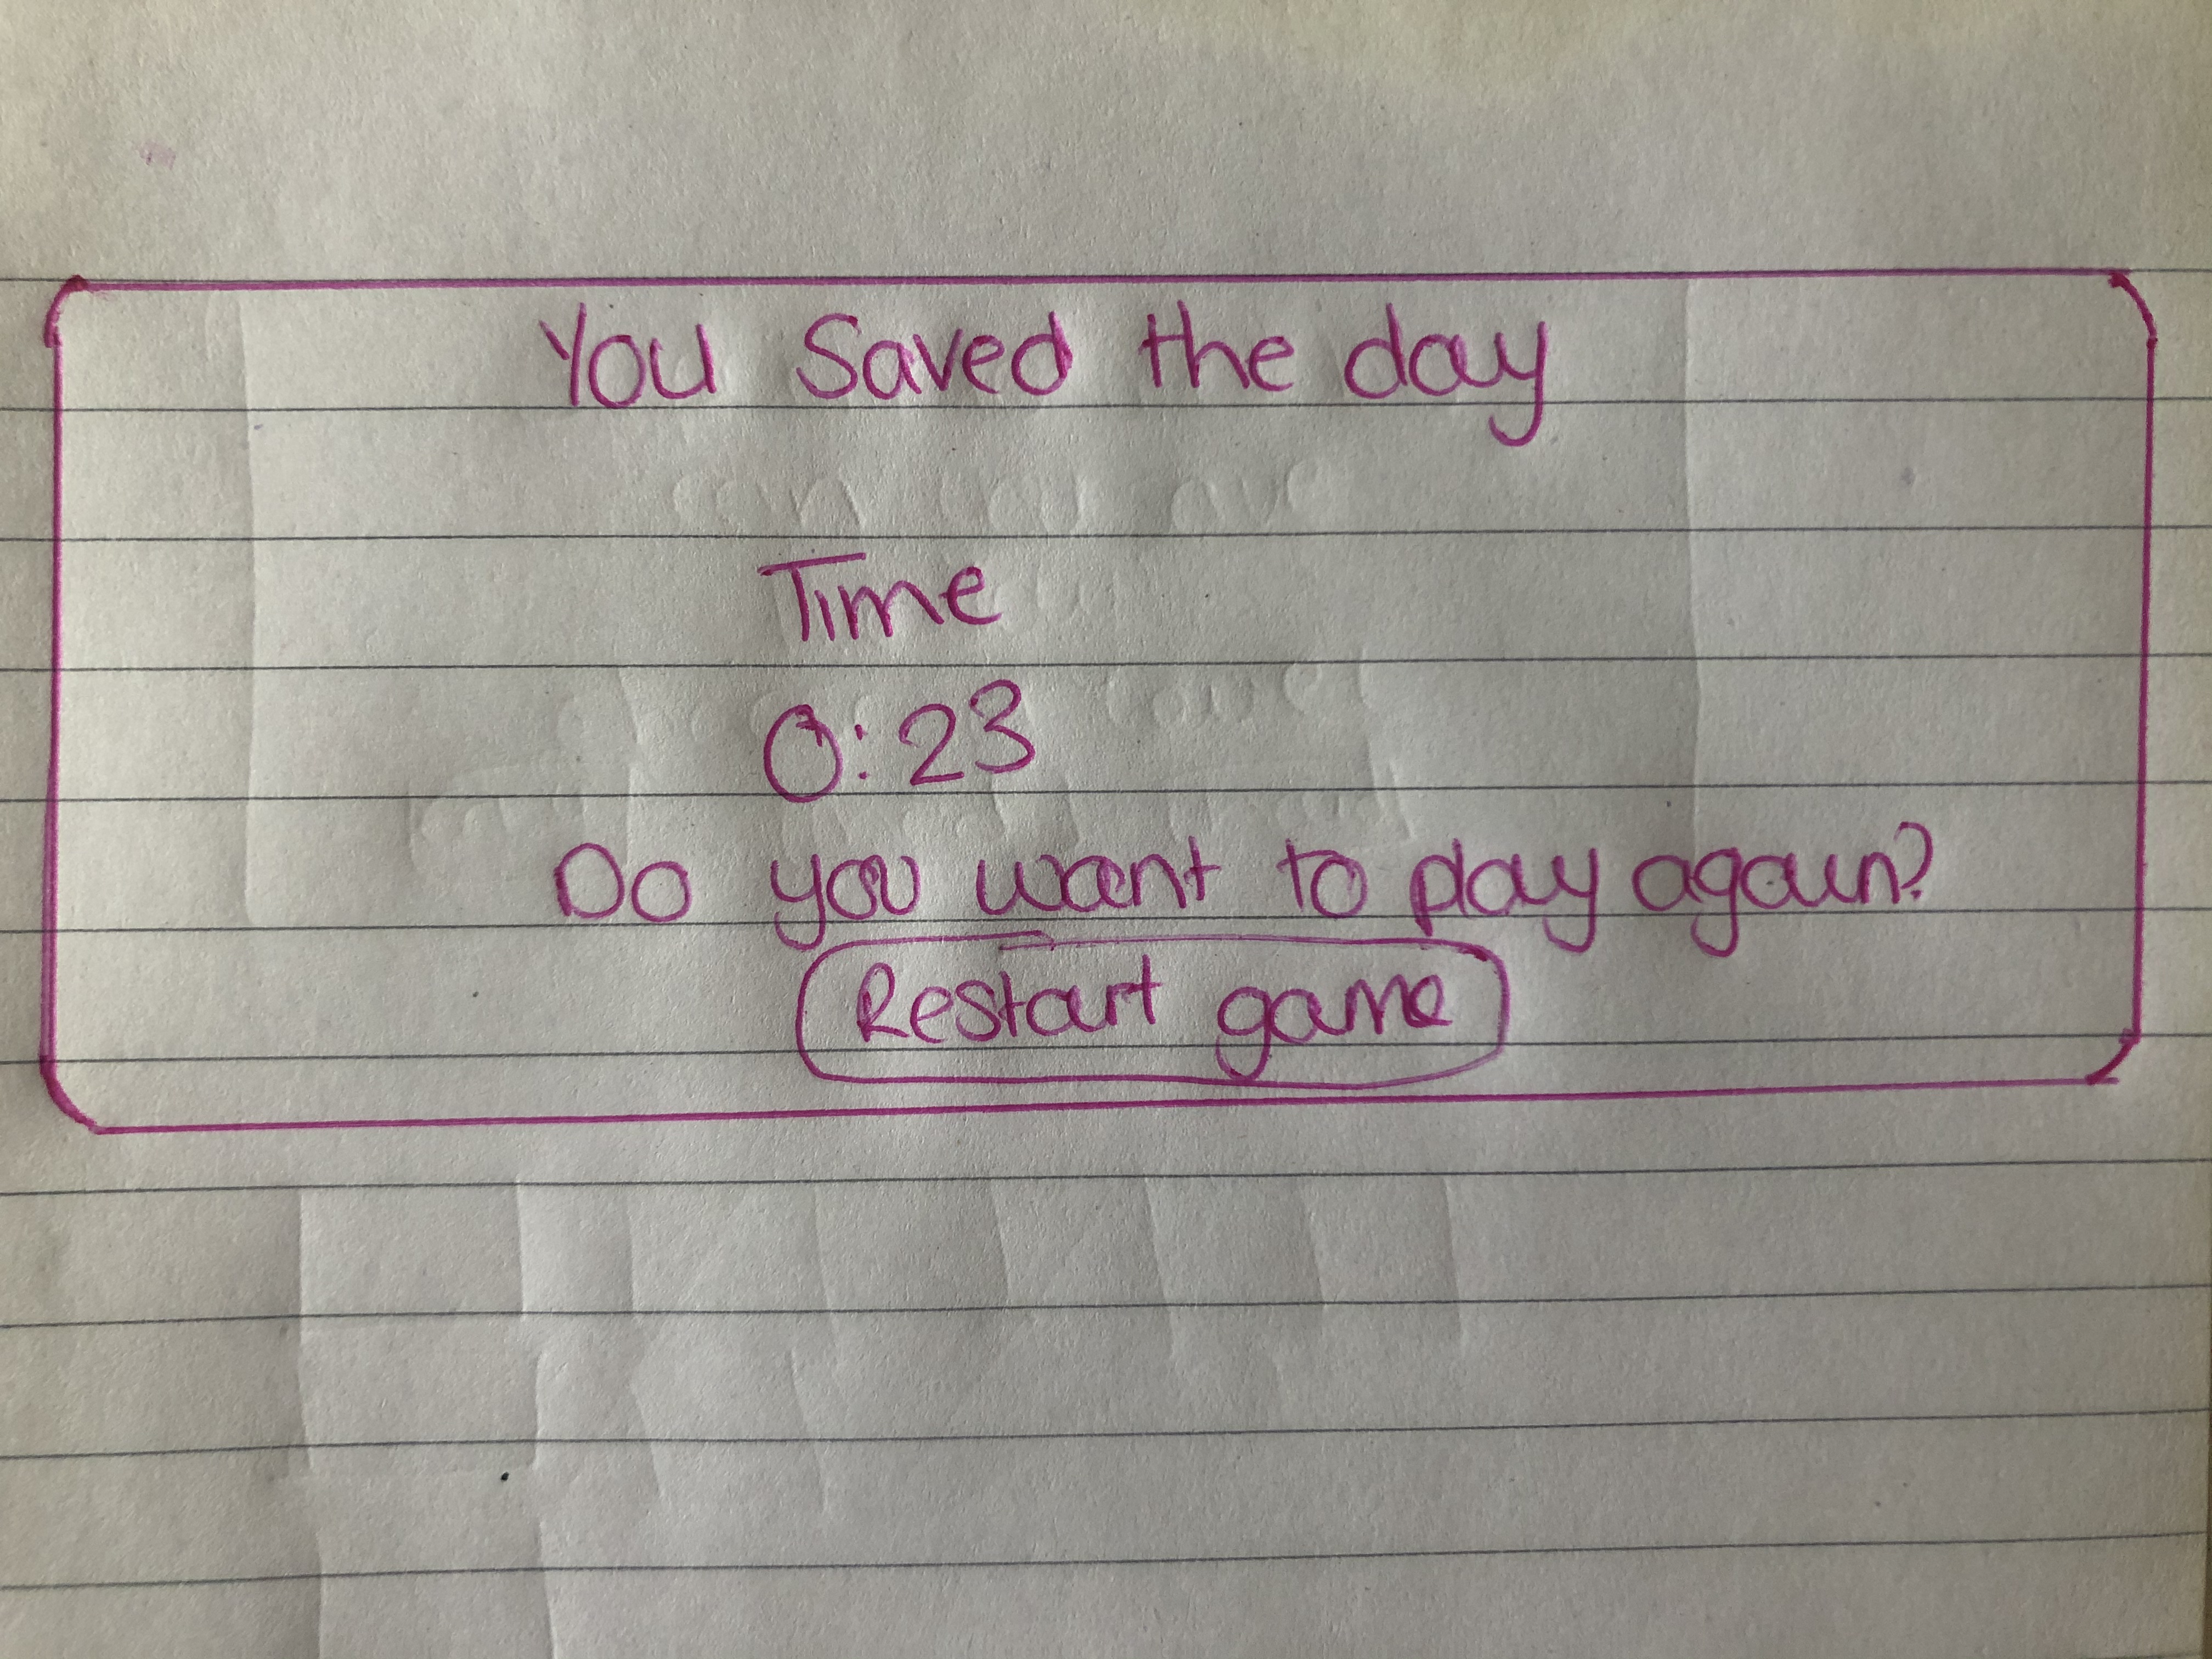 You Saved the day
Time
0:23
Do you want to play again?
Restart game